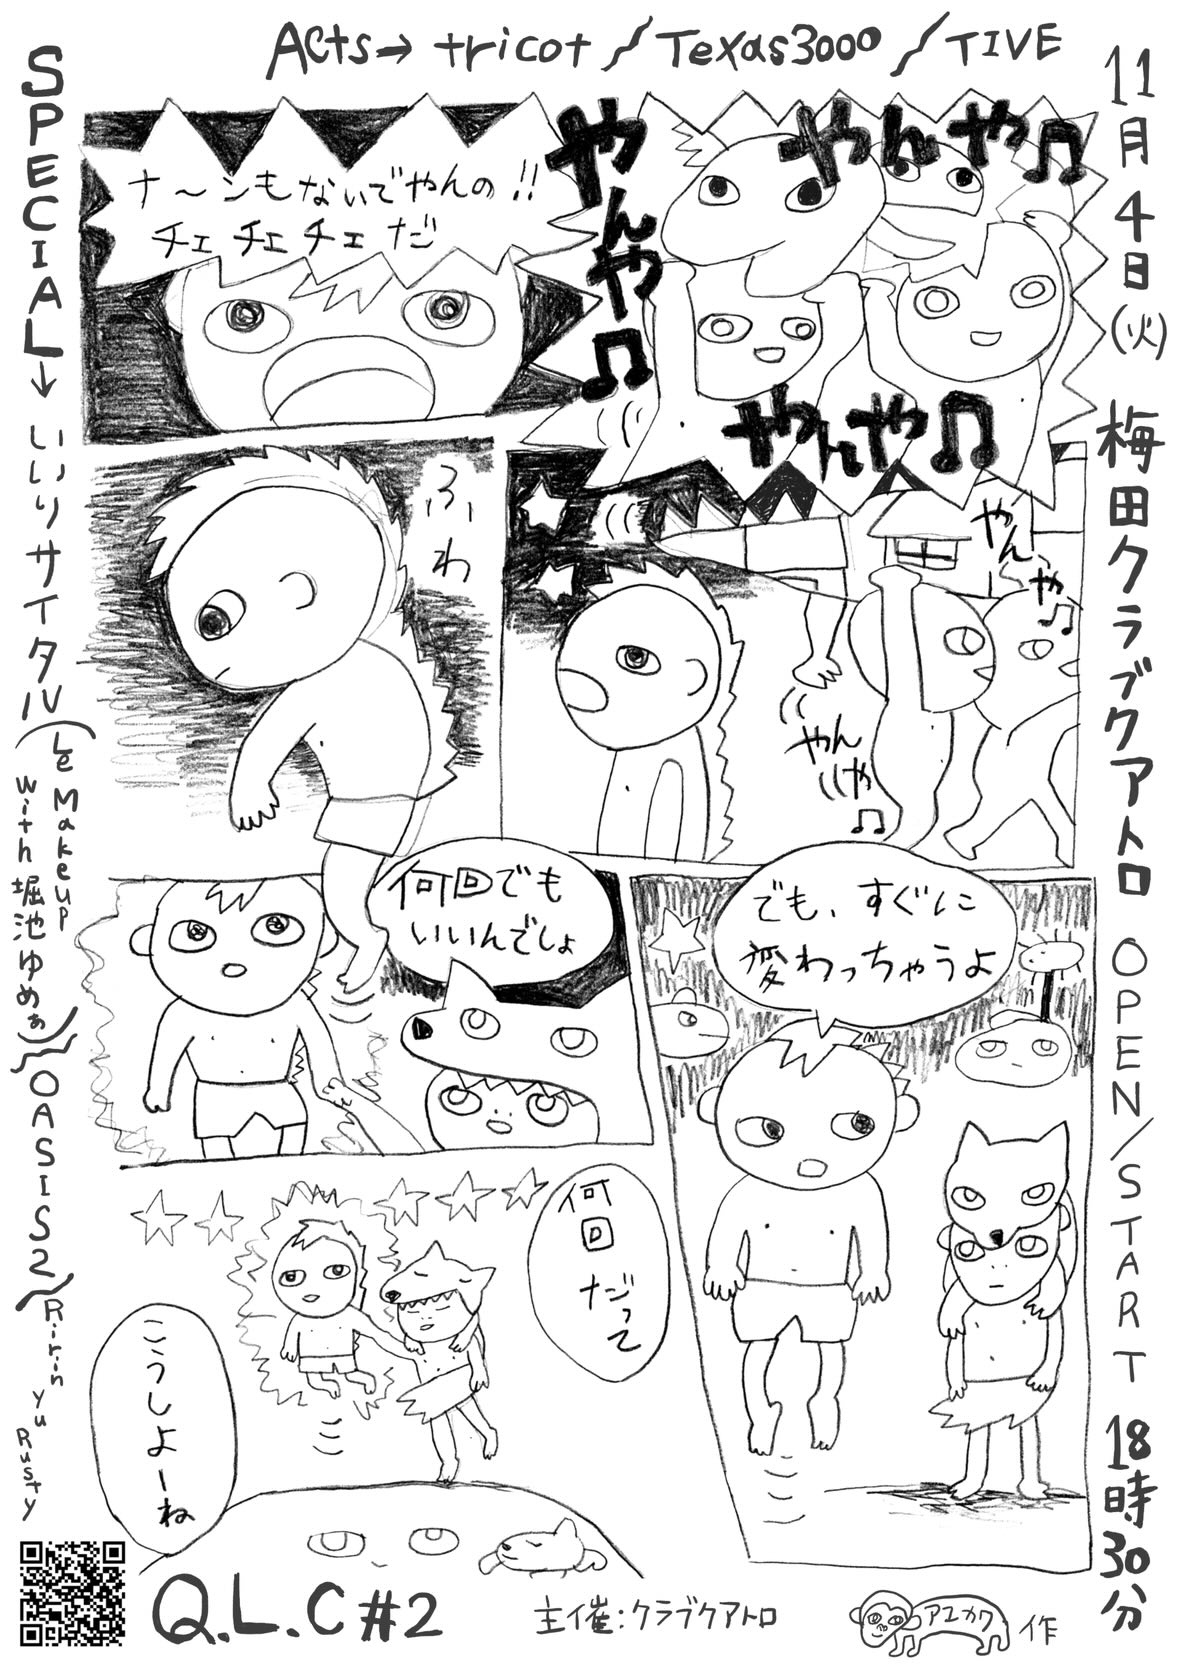 Acts→ tricot / Texas3000 / TIVE
11月4日(火) 梅田クラブクアトロ OPEN/START 18時30分
SPECIAL→ いいリサイタル(Le Makeup with 堀池ゆめぁ)/OASIS2/Ririn yu Rusty
やんや♫
やんや♫
やんや♫
ナ〜ンもないでやんの!!
チェ チェ チェ だ
やんや♫
やんや♫
ふわ
でも、すぐに
変わっちゃうよ
何回でも
いいんでしょ
何回だって
こうしよーね
Q.L.C #2
主催:クラブクアトロ
アエカワ作